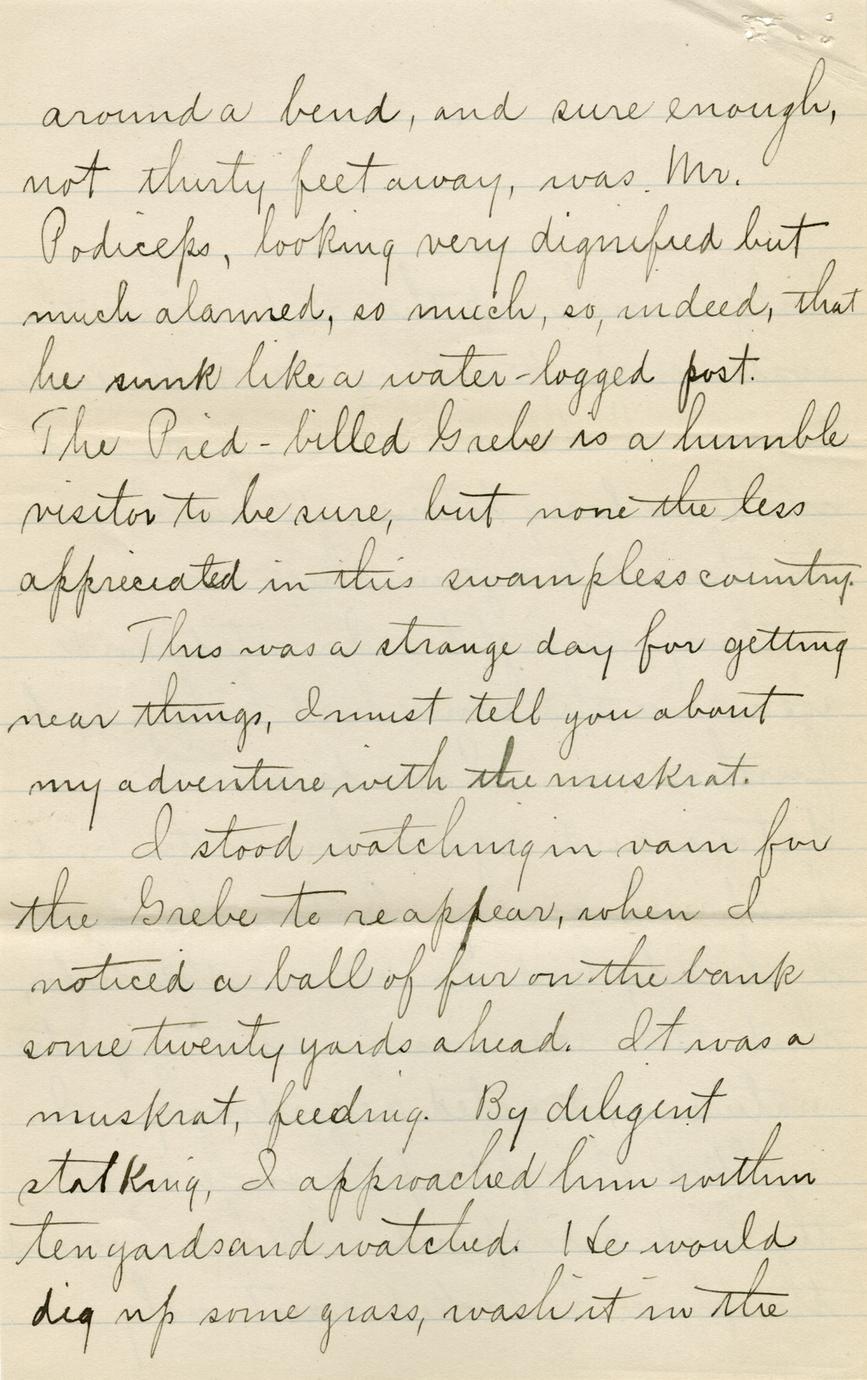 around a bend, and sure enough,
not thirty feet away, was Mr.
Podiceps, looking very dignified but
much alarmed, so much, so, indeed, that
he sunk like a water-logged post.
The Pied-billed Grebe is a humble
visitor to be sure, but none the less
appreciated in this swampless country.
This was a strange day for getting
near things, I must tell you about
my adventure with the muskrat.
I stood watching in vain for
the Grebe to reappear, when I
noticed a ball of fur on the bank
some twenty yards ahead. It was a
muskrat, feeding. By diligent
stalking, I approached him within
ten yards and watched. He would
dig up some grass, wash it in the